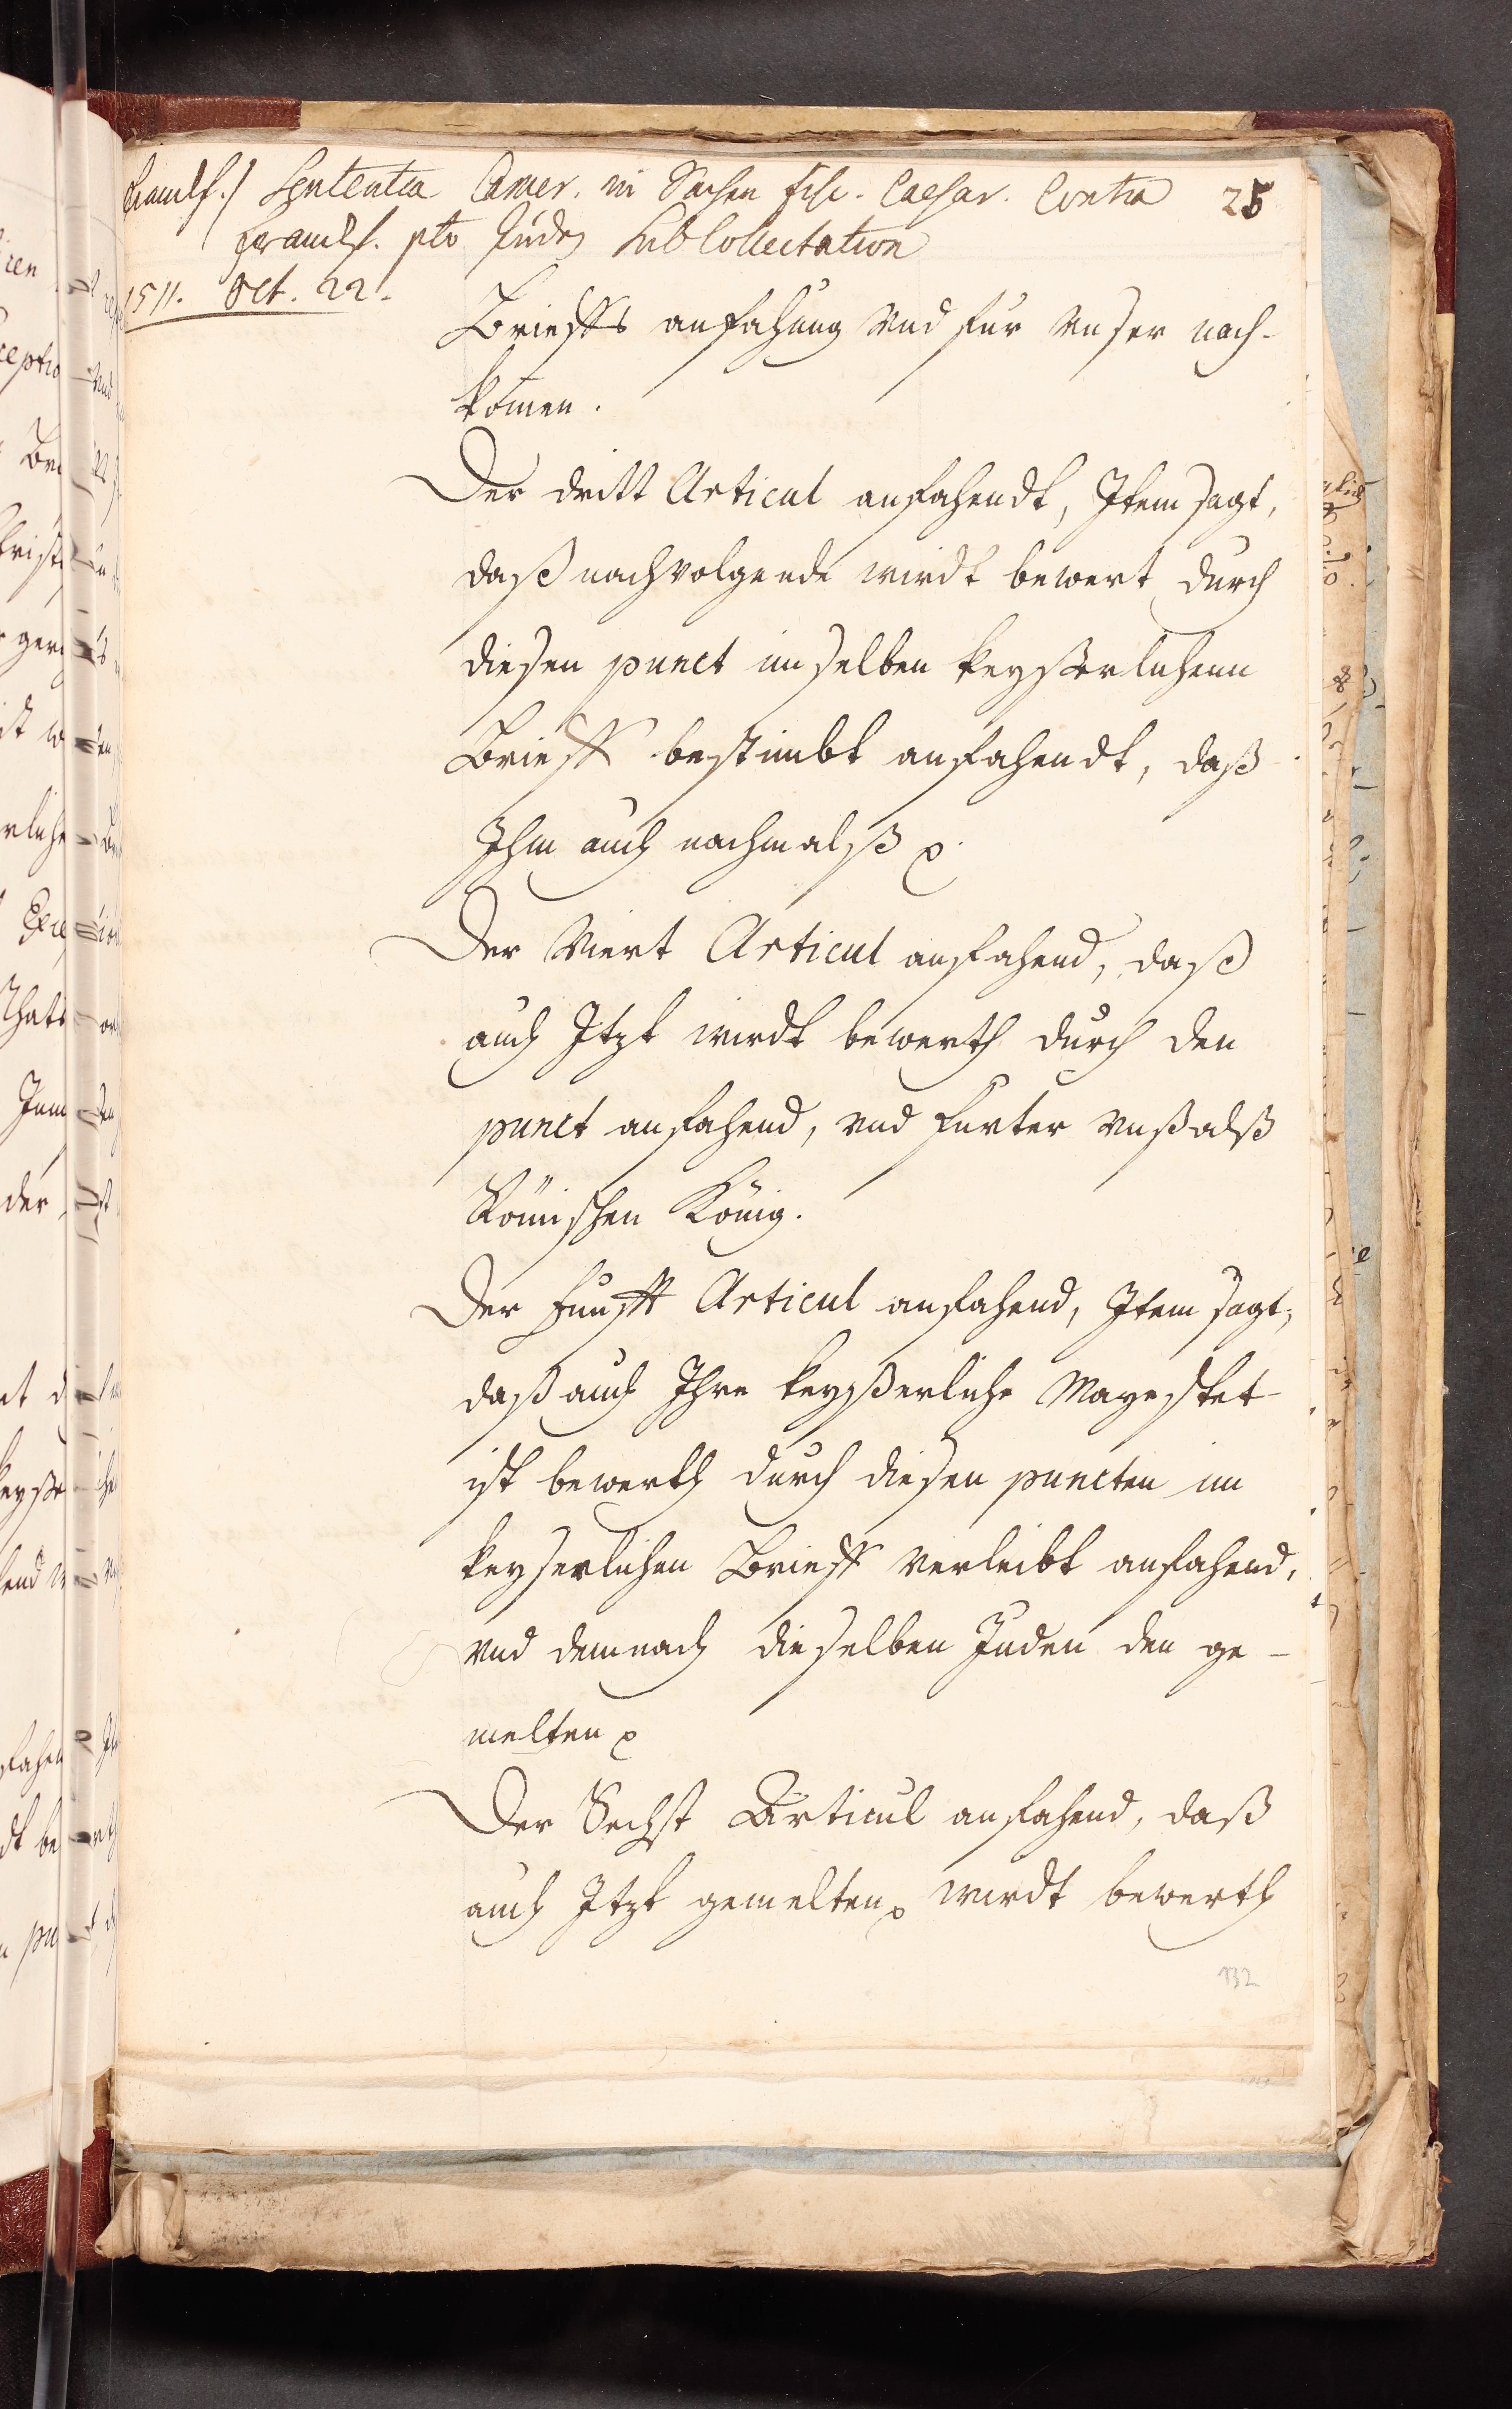 Francf. / Sententia Camer. in Sachen fisc. Caesar. Contra 25
Francf. pto Juden Subcollectation
1511. Oct. 22.
Brieffs anfahung vnd fur vnser nach-
komen.
Der dritt Articul anfahendt, Item sagt,
daß nachvolgende wirdt bewert durch
diesen punct im selben keyßerlichenn
Brieff bestimbt anfahendt, daß
Ihm auch nachmalß p.
Der Viert Articul anfahend, daß
auch Itzt wirdt bewerth durch den
punct anfahend, vnd furter vnß alß
Römischen König.
Der Funfft Articul anfahend, Item sagt,
daß auch Ihre keyßerliche Mayestet
ist bewerth durch diesen puncten im
keyserlichen Brieff verleibt anfahend,
vnd demnach dieselben Juden den ge-
melten p
Der Sechst Articul anfahend, daß
auch Itzt gemelten p wirdt bewerth
132